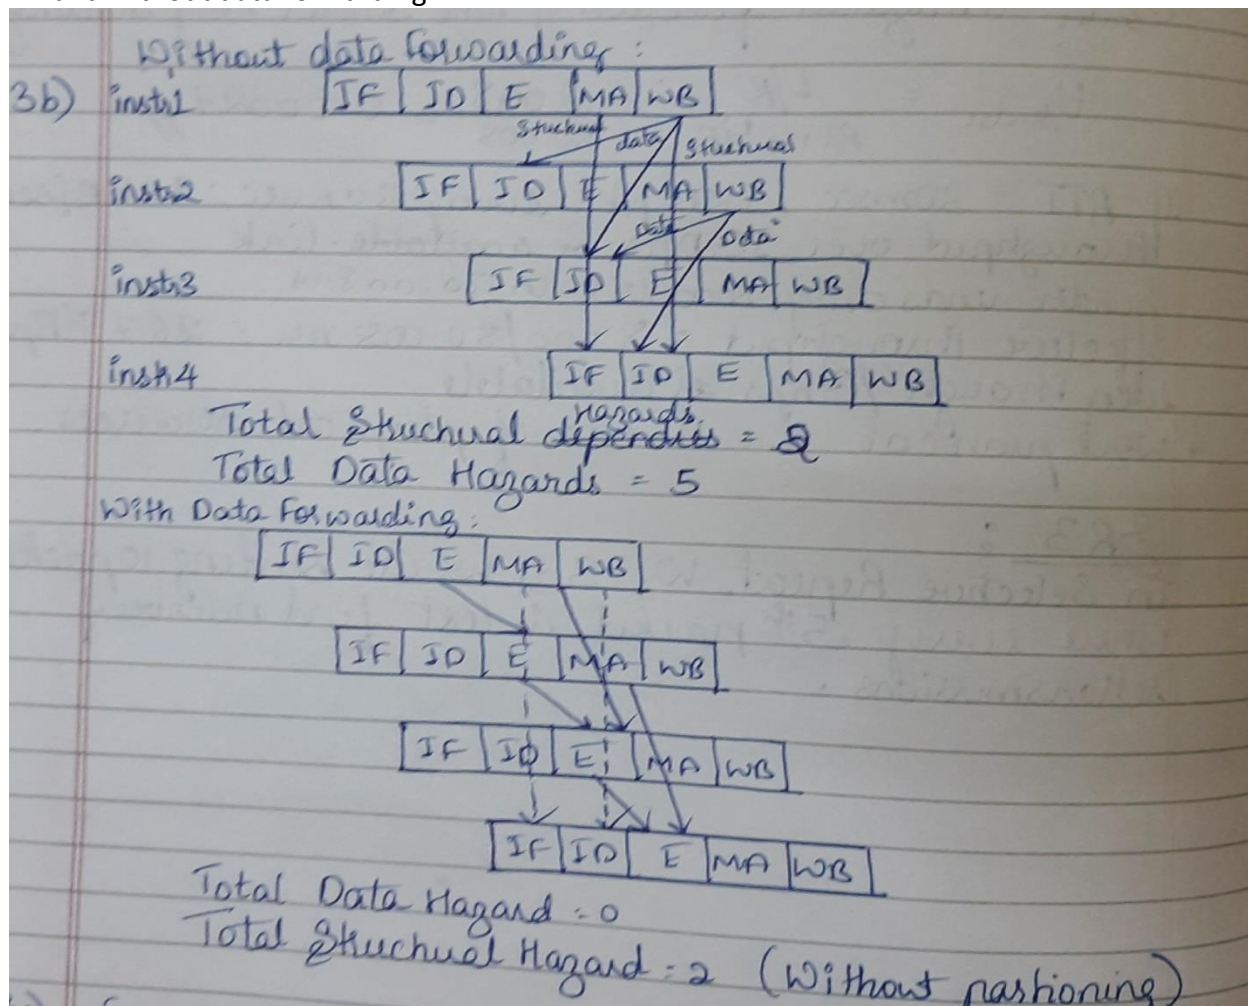 Without data forwarding:
3b) instr1 IF ID E MA WB
Structural data Structural
instr2 IF ID E MA WB
Data Data
instr3 IF ID E MA WB
instr4 IF ID E MA WB
Hazards
Total Structural = 2
Total Data Hazards = 5
With Data Forwarding:
IF ID E MA WB
IF ID E MA WB
IF ID E MA WB
IF ID E MA WB
Total Data Hazard = 0
Total Structural Hazard = 2 (Without